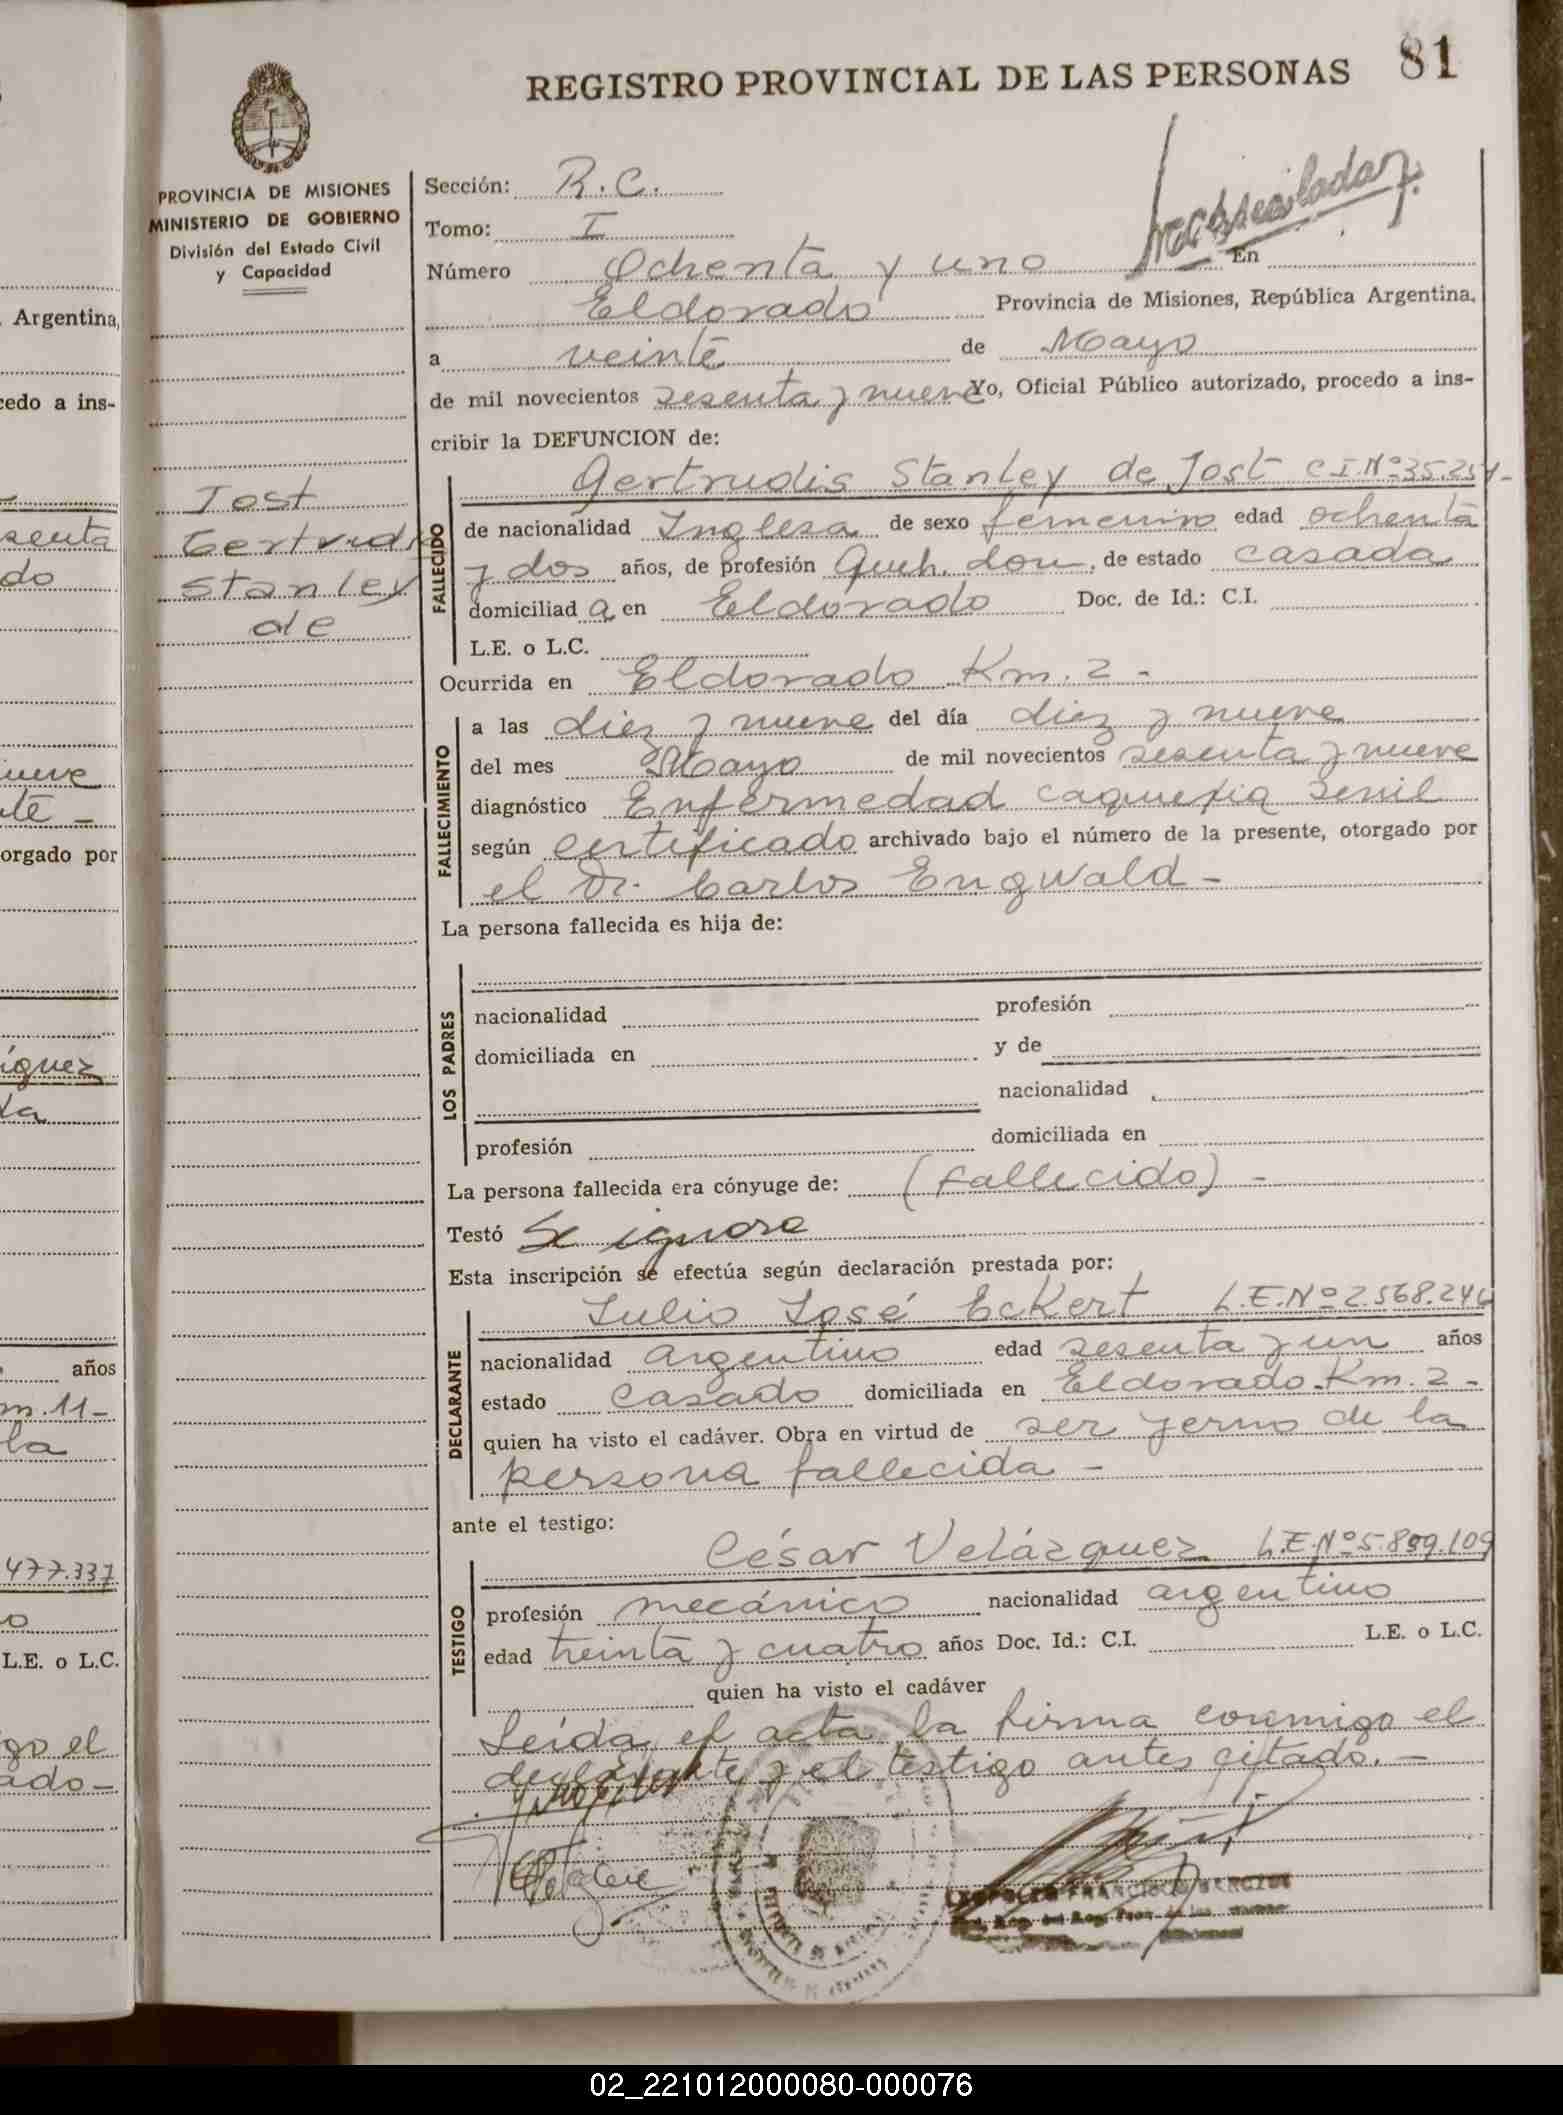 REGISTRO PROVINCIAL DE LAS PERSONAS 81
PROVINCIA DE MISIONES
MINISTERIO DE GOBIERNO
División del Estado Civil
y Capacidad
Jost
Gertrudis
Stanley
de
Sección: R.C.
Tomo: I
Número Ochenta y uno En
Eldorado Provincia de Misiones, República Argentina,
a veinte de Mayo
de mil novecientos sesenta y nueve Yo, Oficial Público autorizado, procedo a ins-
cribir la DEFUNCION de:
FALLECIDO
Gertrudis Stanley de Jost C.I.Nº35.251-
de nacionalidad Inglesa de sexo femenino edad ochenta
y dos años, de profesión Queh. dom., de estado casada
domiciliada en Eldorado Doc. de Id.: C.I.
L.E. o L.C.
Ocurrida en Eldorado Km. 2 -
FALLECIMIENTO
a las diez y nueve del día diez y nueve
del mes Mayo de mil novecientos sesenta y nueve
diagnóstico Enfermedad caquexia senil
según certificado archivado bajo el número de la presente, otorgado por
el Dr. Carlos Engwald -
La persona fallecida es hija de:
LOS PADRES
nacionalidad profesión
domiciliada en y de
nacionalidad
profesión domiciliada en
La persona fallecida era cónyuge de: (fallecido) -
Testó Se ignora
Esta inscripción se efectúa según declaración prestada por:
DECLARANTE
Julio José Eckert L.E.Nº2.568.246
nacionalidad argentino edad sesenta y un años
estado casado domiciliada en Eldorado Km. 2 -
quien ha visto el cadáver. Obra en virtud de ser yerno de la
persona fallecida -
ante el testigo:
TESTIGO
César Velázquez L.E.Nº5.899.109
profesión mecánico nacionalidad argentino
edad treinta y cuatro años Doc. Id.: C.I. L.E. o L.C.
quien ha visto el cadáver
Leída el acta la firma conmigo el
declarante y el testigo antes citado. -
Argentina,
cedo a ins-
senta
do
ueve
te -
orgado por
íguez
la
años
m. 11 -
la
477.337
o
L.E. o L.C.
go el
ado -
02_221012000080-000076